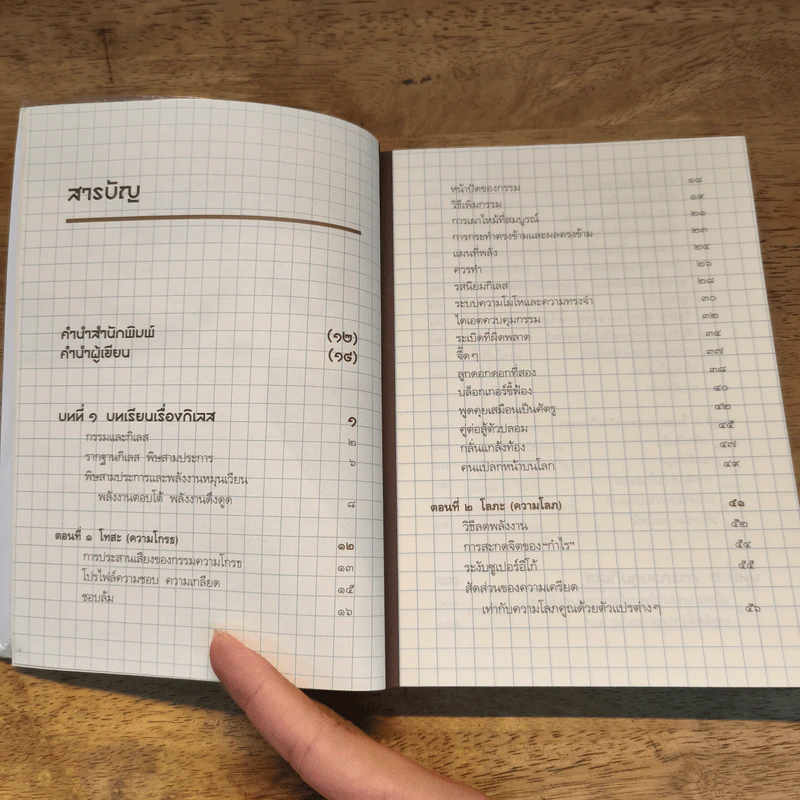 สารบัญ
คำนำสำนักพิมพ์ (๑๒)
คำนำผู้เขียน (๑๔)
บทที่ ๑ บทเรียนเรื่องกิเลส ๑
กรรมและกิเลส ๒
รากฐานกิเลส พิษสามประการ ๖
พิษสามประการและพลังงานหมุนเวียน
พลังงานตอบโต้ พลังงานดึงดูด ๘
ตอนที่ ๑ โทสะ (ความโกรธ) ๑๒
การประสานเสียงของกรรมความโกรธ ๑๓
โปรไฟล์ความชอบ ความเกลียด ๑๕
ชอบล้ม ๑๖
หน้าปัดของกรรม ๑๘
วิธีเพิ่มกรรม ๑๙
การเผาไหม้ที่สมบูรณ์ ๒๑
การกระทำตรงข้ามและผลตรงข้าม ๒๓
แผนที่พลัง ๒๔
ควรทำ ๒๖
รสนิยมกิเลส ๒๘
ระบบความโมโหและความทรงจำ ๓๐
ไดเอตควบคุมกรรม ๓๒
ระเบิดที่ผิดพลาด ๓๔
จี๊ดๆ ๓๗
ลูกดอกดอกที่สอง ๓๘
บล็อกเกอร์ขี้ฟ้อง ๔๐
พูดคุยเสมือนเป็นศัตรู ๔๒
คู่ต่อสู้ตัวปลอม ๔๕
กลั่นแกล้งท้อง ๔๗
คนแปลกหน้าบนโลก ๔๙
ตอนที่ ๒ โลภะ (ความโลภ) ๕๑
วิธีลดพลังงาน ๕๒
การสะกดจิตของ“กำไร” ๕๔
ระงับซูเปอร์อีโก้ ๕๕
สัดส่วนของความเครียด
เท่ากับความโลภคูณด้วยตัวแปรต่างๆ ๕๖